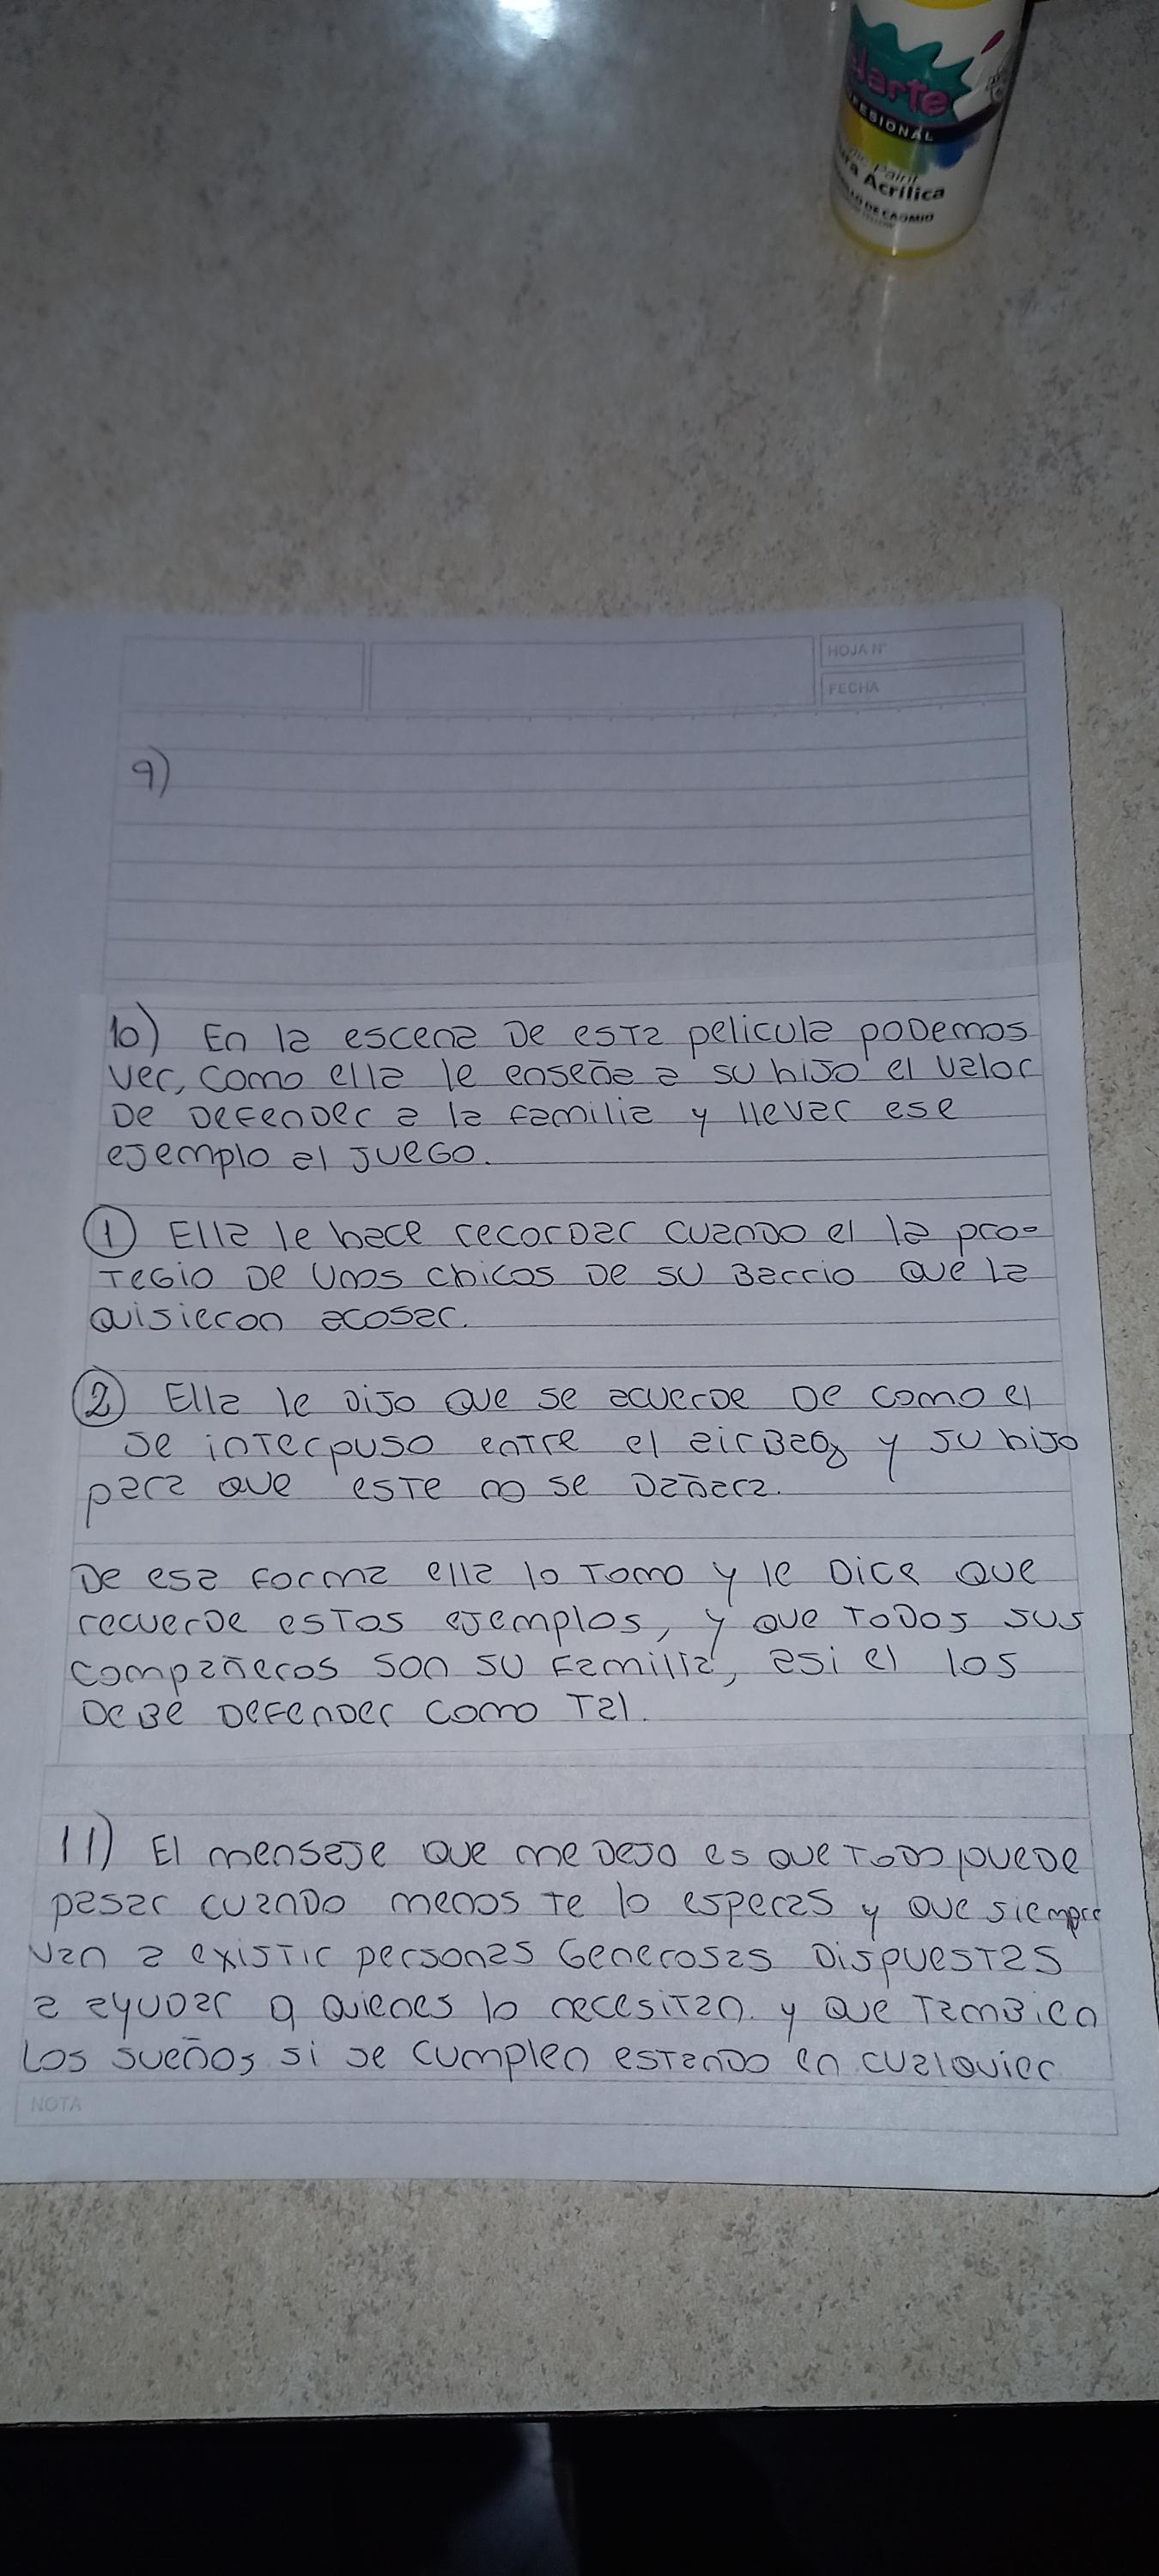 larte
FESIONAL
Paint
Acrílica
DE CADMIO
HOJA N°
FECHA
9)
10) En la escena De esTa pelicula poDemos
ver, como ella le enseña a su hiJo el valor
De DeFenDer a la Familia y llevar ese
eJemplo al JueGo.
① Ella le hace recorDar cuanDo el la pro-
TeGio De Unos chicos De su Barrio Que la
Quisieron acosar.
② Ella le DiJo Que se acuerDe De como el
se inTerpuso enTre el airBag y su hiJo
para Que esTe no se Dañara.
De esa Forma ella lo Tomo y le Dice Que
recuerDe esTos eJemplos, y Que ToDos sus
compañeros son su Familia, asi el los
DeBe DeFenDer como Tal.
11) El mensaJe Que me DeJo es Que ToDo pueDe
pasar cuanDo menos Te lo esperas y Que siempre
van a exisTir personas Generosas DispuesTas
a ayuDar a Quienes lo necesiTan. y Que TamBien
Los sueños si se cumplen esTanDo en cualQuier
NOTA